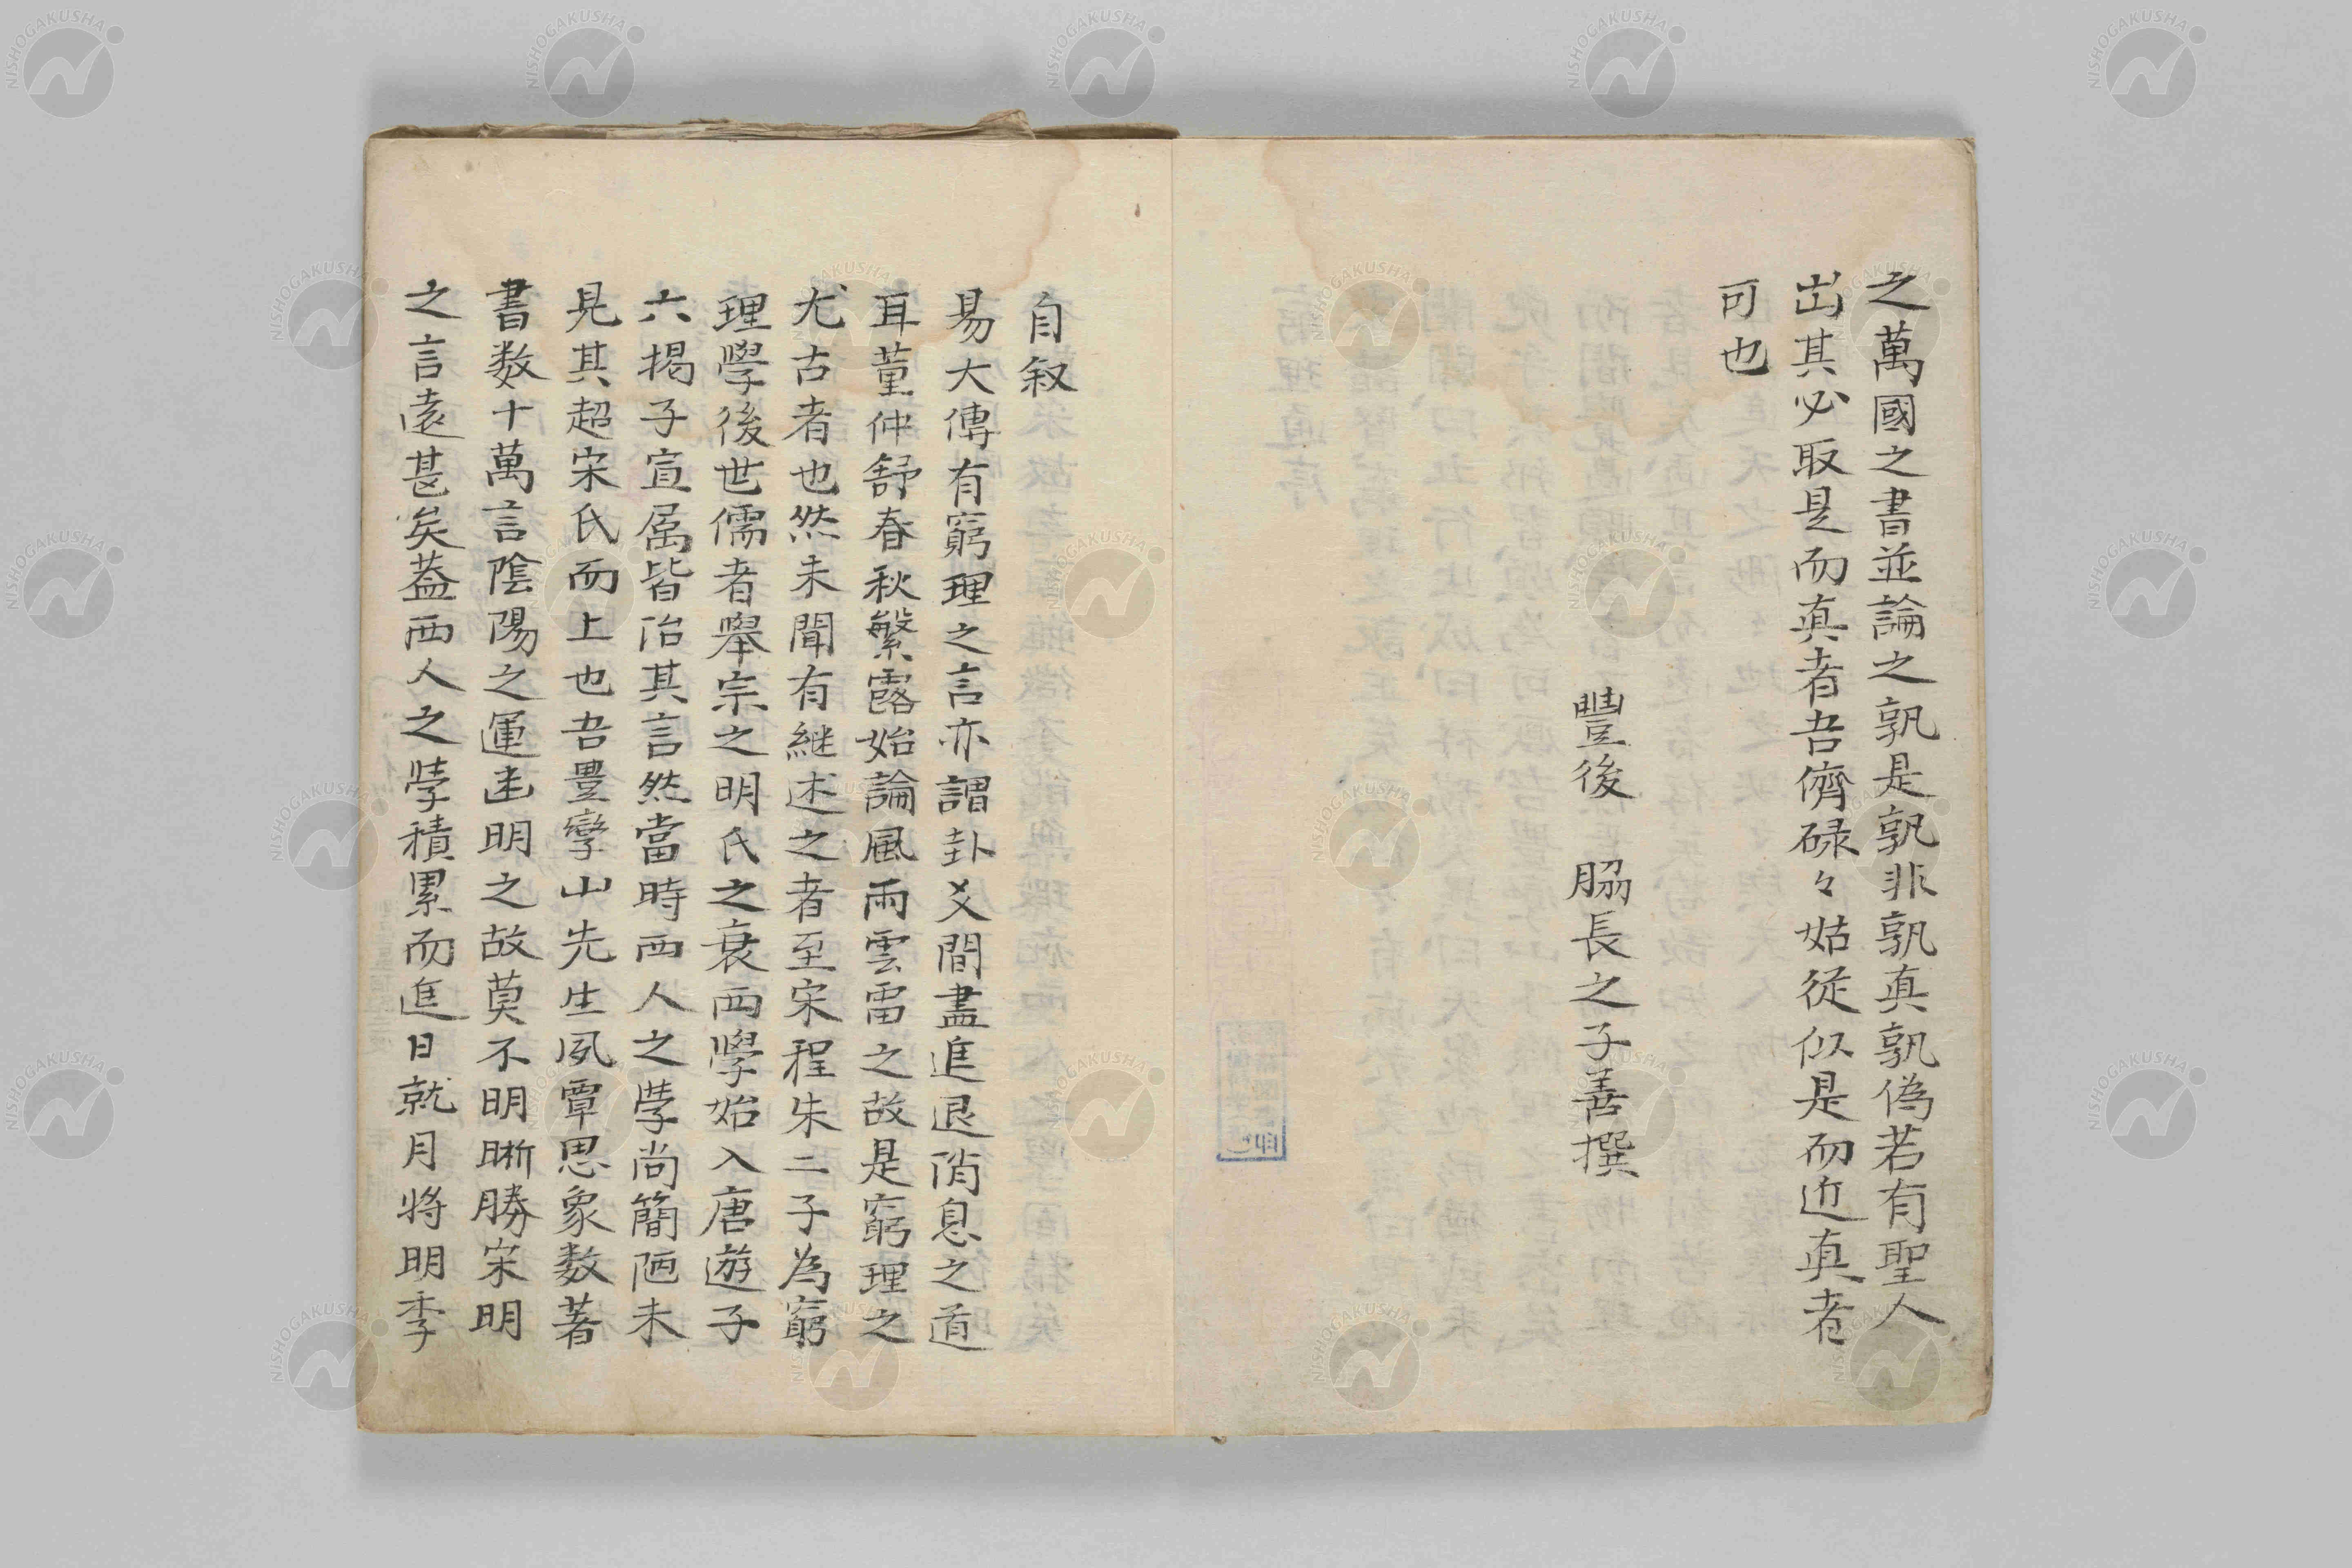 之萬國之書並論之孰是孰非孰真孰偽若有聖人
出其必取是而真者吾儕碌々姑從似是而近真者
可也
豐後 脇長之子善撰
自叙
易大傳有窮理之言亦謂卦爻間盡進退消息之道
耳董仲舒春秋繁露始論風雨雲雷之故是窮理之
尤古者也然未聞有継述之者至宋程朱二子為窮
理學後世儒者舉宗之明氏之衰西學始入唐遊子
六揭子宣属皆治其言然當時西人之学尚簡陋未
見其超宋氏而上也吾豊孿山先生夙覃思象数著
書数十萬言陰陽之運幽明之故莫不明晣勝宋明
之言遠甚矣蓋西人之学積累而進日就月将明季
NISHOGAKUSHA